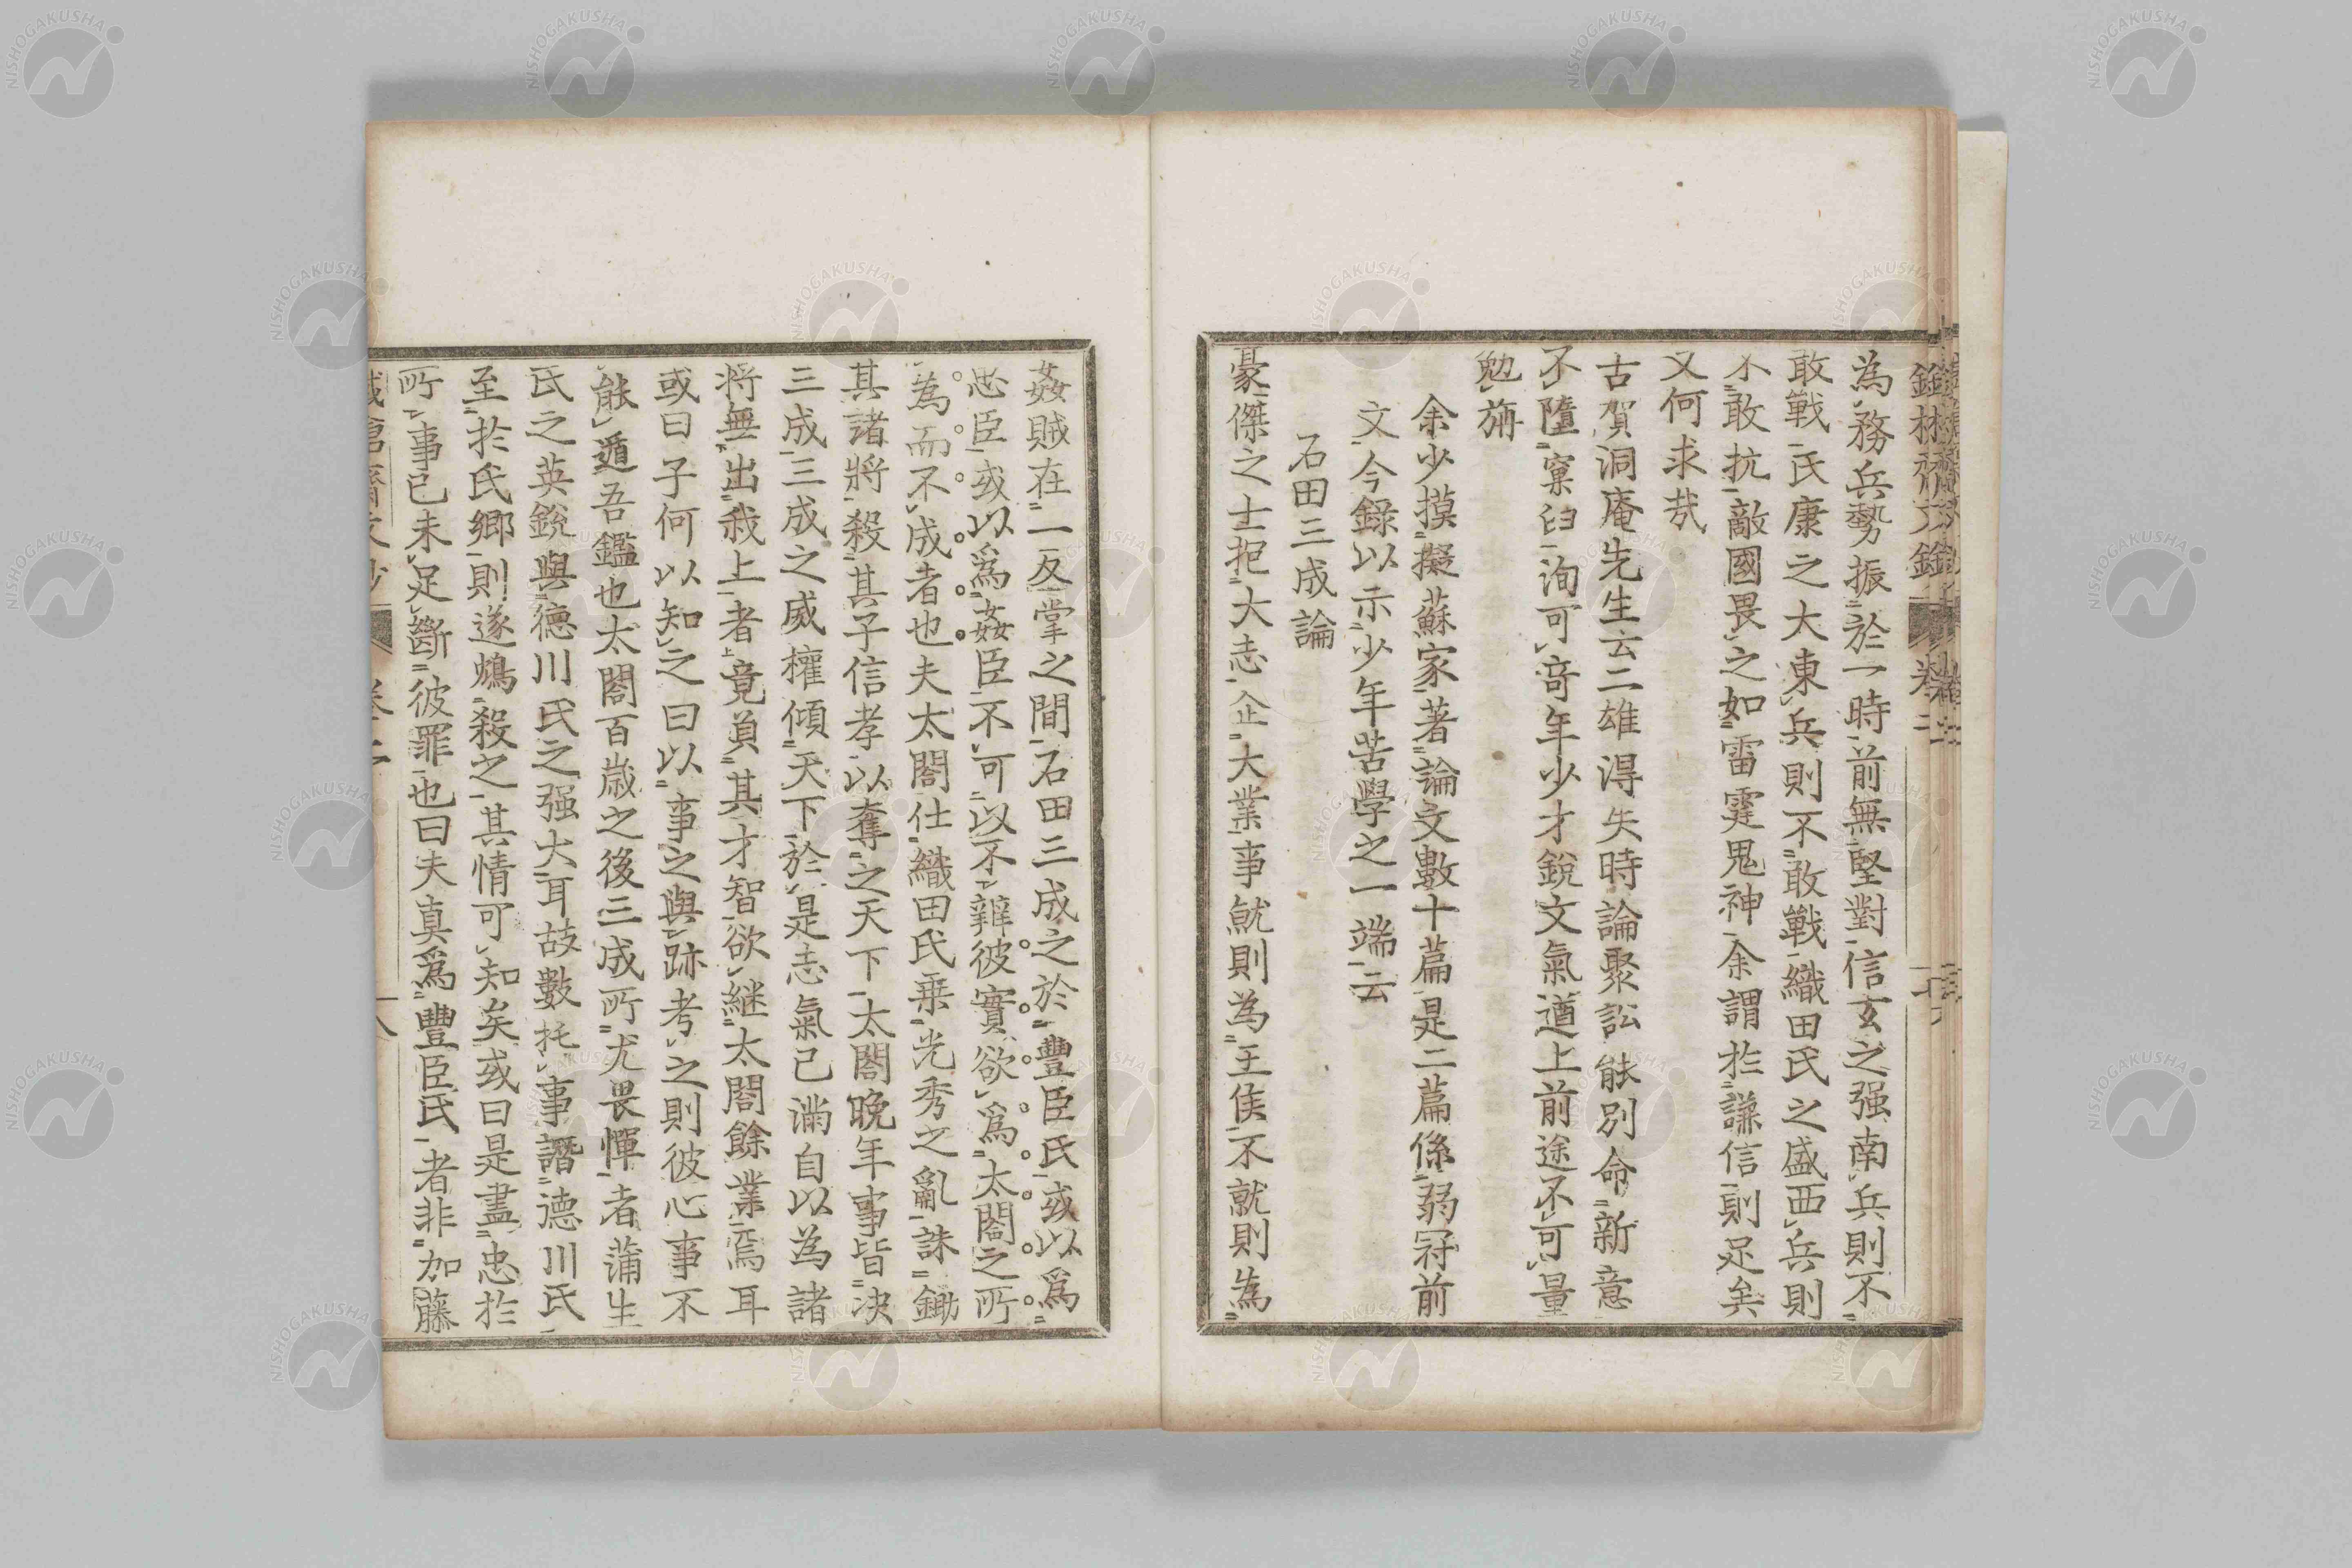 為務兵勢振於一時前無堅對信玄之强南兵則不
敢戰氏康之大東兵則不敢戰織田氏之盛西兵則
不敢抗敵國畏之如雷霆鬼神余謂於謙信則足矣
又何求哉
古賀洞庵先生云二雄得失時論聚訟能別命新意
不墮窠臼洵可奇年少才銳文氣遒上前途不可量
勉旃
余少摸擬蘇家著論文數十篇是二篇係弱冠前
文今錄以示少年苦學之一端云
石田三成論
豪傑之士抱大志企大業事就則為王侯不就則為
姦賊在一反掌之間石田三成之於豐臣氏或以爲
忠臣或以爲姦臣不可以不辨彼實欲爲太閤之所
為而不成者也夫太閤仕織田氏乗光秀之亂誅鋤
其諸將殺其子信孝以奪之天下太閤晚年事皆决
三成三成之威權傾天下於是志氣已滿自以為諸
将無出我上者竟負其才智欲継太閤餘業焉耳
或曰子何以知之曰以事之與跡考之則彼心事不
能遁吾鑑也太閤百歲之後三成所尤畏憚者蒲生
氏之英銳與德川氏之强大耳故數托事譖德川氏
至於氏鄉則遂鴆殺之其情可知矣或曰是盡忠於
所事已未足斷彼罪也曰夫真爲豐臣氏者非加藤